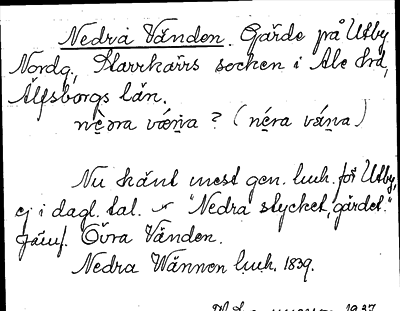 Nedra Vänden. Gärde på Utby
Nordg, Starrkärrs socken i Ale hd,
Älfsborgs län.
nèdra væn̄a ? (néra vǽna)
Nu känt mest gen. lmh. för Utby,
ej i dagl. tal. "Nedra stycket, gärdet."
Jämf. Övra Vänden.
Nedra Wännen lmh. 1839.
1937